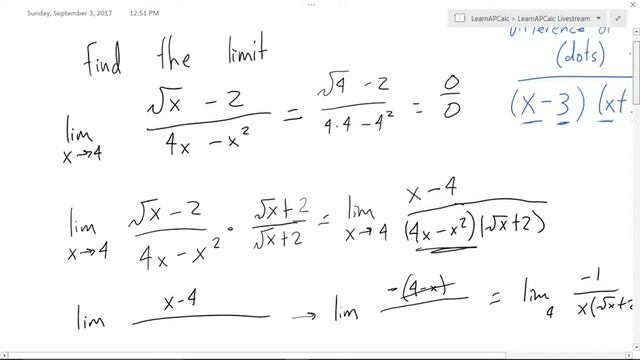 Sunday, September 3, 2017 12:51 PM
LearnAPCalc > LearnAPCalc Livestream
find the limit
(dots)
(x-3)(x+
lim x→4 (√x - 2)/(4x - x²) = (√4 - 2)/(4·4 - 4²) = 0/0
lim x→4 (√x - 2)/(4x - x²) · (√x + 2)/(√x + 2) = lim x→4 (x - 4)/((4x - x²)(√x + 2))
lim x-4 → lim -(4-x) = lim 4 -1/(x(√x+2